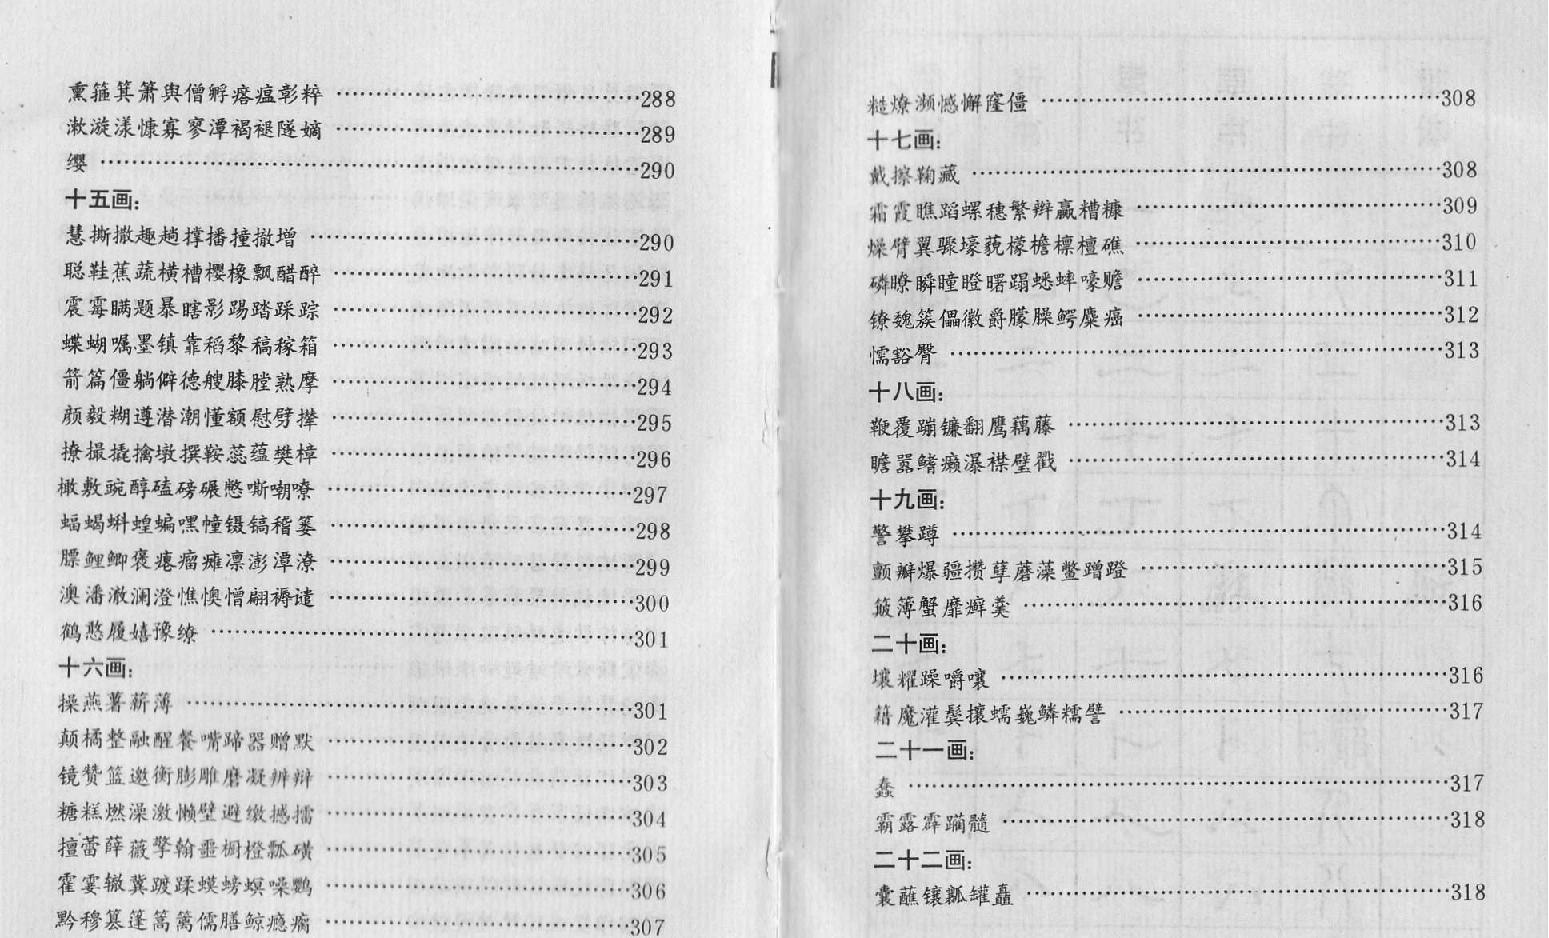 熏箍箕箫舆僧孵瘩瘟彰粹……288
漱漩漾慷寡寥潭褐褪隧嫡……289
缨……290
十五画：
慧撕撒趣趟撑播撞撤增……290
聪鞋蕉蔬横槽樱橡飘醋醉……291
震霉瞒题暴瞎影踢踏踩踪……292
蝶蝴嘱墨镇靠稻黎稿稼箱……293
箭篇僵躺僻德艘膝膛熟摩……294
颜毅糊遵潜潮懂额慰劈撵……295
撩撮撬擒墩撰鞍蕊蕴樊樟……296
橄敷豌醇磕磅碾憋嘶嘲嘹……297
蝠蝎蝌蝗蝙嘿幢镊镐稽篓……298
膘鲤鲫褒瘪瘤瘫凛澎潭潦……299
澳潘澈澜澄憔懊憎翩褥谴……300
鹤憨履嬉豫缭……301
十六画：
操燕薯薪薄……301
颠橘整融醒餐嘴蹄器赠默……302
镜赞篮邀衡膨雕磨凝辨辩……303
糖糕燃澡激懒壁避缴撼擂……304
擅蕾薛薇擎翰噩橱橙瓢磺……305
霍霎辙冀踱蹂蟆螃螟噪鹦……306
黔穆篡篷篙篱儒膳鲸瘾瘸……307
糙燎濒憾懈窿僵……308
十七画：
戴擦鞠藏……308
霜霞瞧蹈螺穗繁辫赢糟糠……309
燥臂翼骤壕藐檬檐檩檀礁……310
磷瞭瞬瞳瞪曙蹋蟋蟀嚎赡……311
镣魏簇儡徽爵朦臊鳄糜癌……312
懦豁臀……313
十八画：
鞭覆蹦镰翻鹰藕藤……313
瞻嚣鳍癞瀑襟璧戳……314
十九画：
警攀蹲……314
颤瓣爆疆攒孽蘑藻鳖蹭蹬……315
簸簿蟹靡癣羹……316
二十画：
壤耀躁嚼嚷……316
籍魔灌鬓攘蠕巍鳞糯譬……317
二十一画：
蠢……317
霸露霹躏髓……318
二十二画：
囊蘸镶瓤罐矗……318